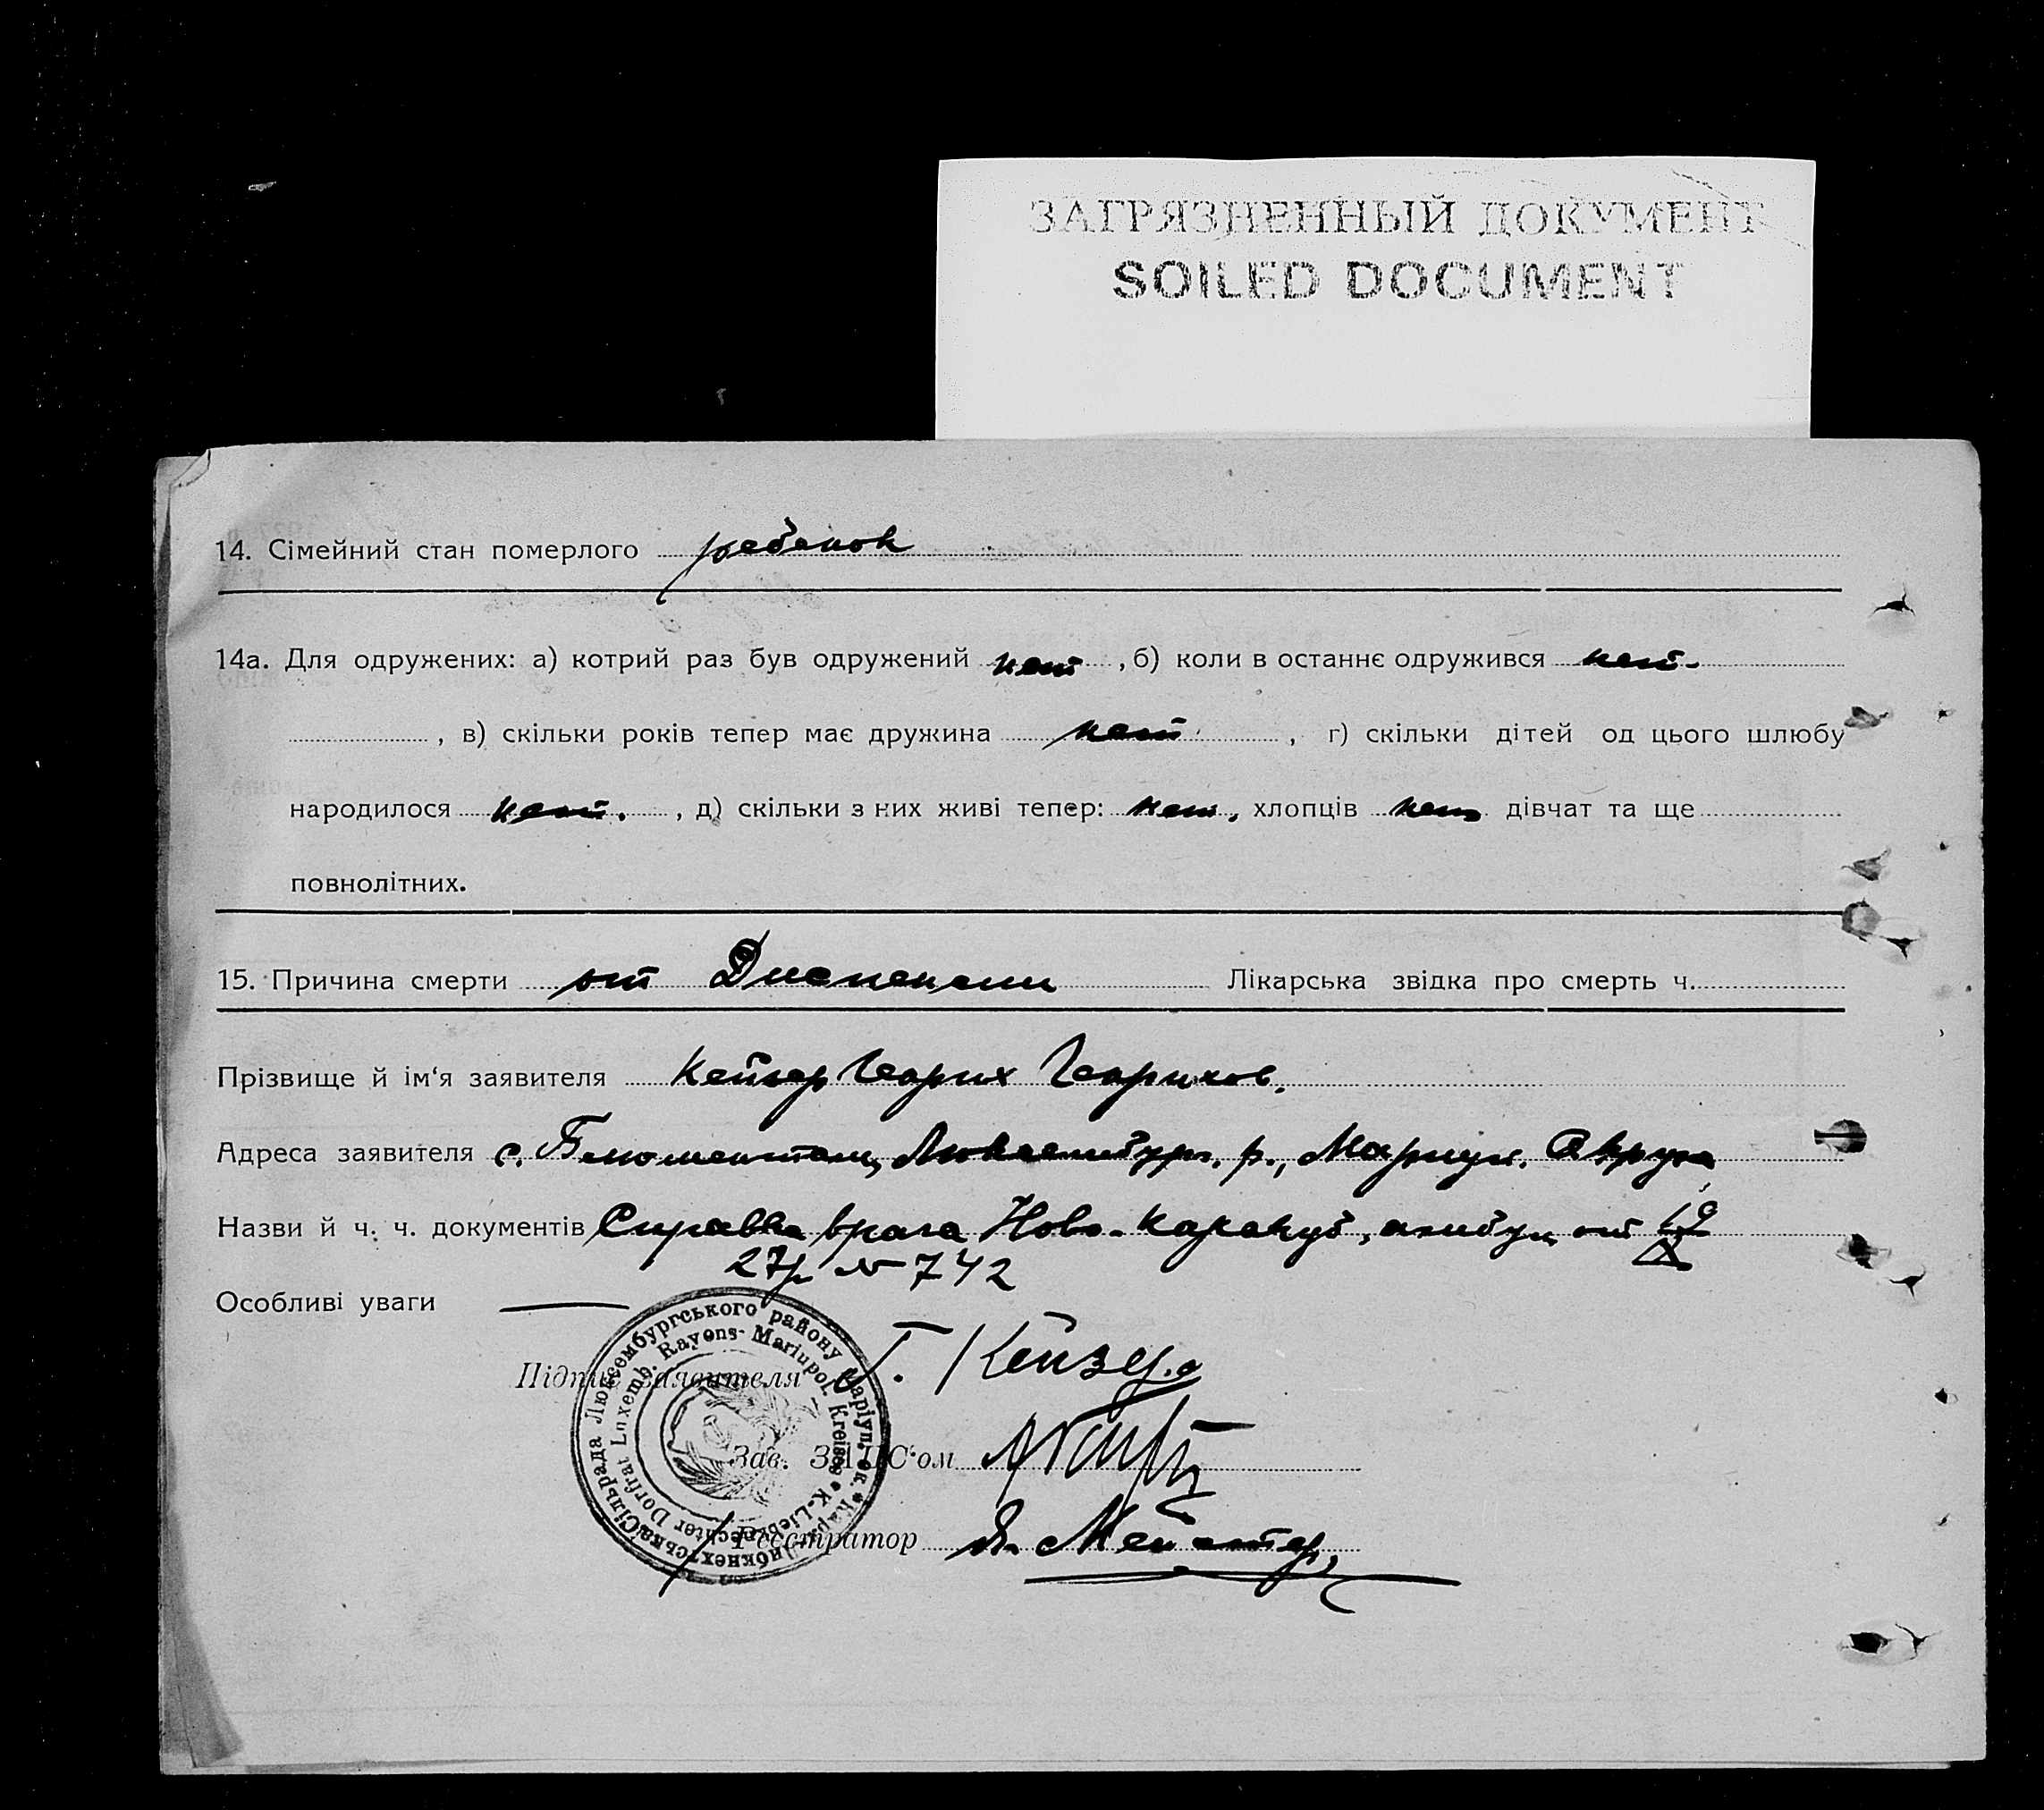 ЗАГРЯЗНЕННЫЙ ДОКУМЕНТ
SOILED DOCUMENT
14. Сімейний стан померлого ребенок
14а. Для одружених: а) котрий раз був одружений нет , б) коли в останнє одружився нет.
, в) скільки років тепер має дружина нет , г) скільки дітей од цього шлюбу
народилося нет. , д) скільки з них живі тепер: нет, хлопців нет дівчат та ще
повнолітних.
15. Причина смерти от Диспепсии Лікарська звідка про смерть ч.
Прізвище й ім'я заявителя Кейзер Генрих Генрихов.
Адреса заявителя с. Люксембург. р., Мариуп. Округа
Назви й ч. ч. документів Справка врача Ново-Каракуб, амбул от 19/IX
27р № 742
Особливі уваги —
Підпис заявителя Г. Кейзер
Зав. ЗАГС'ом
Реєстратор Я. Мейстер,
Сільрада Люксембургського району Маріуп. ок.
K.-Liebknechter Dorfrat Luxemb. Rayons- Mariupol. Kreises